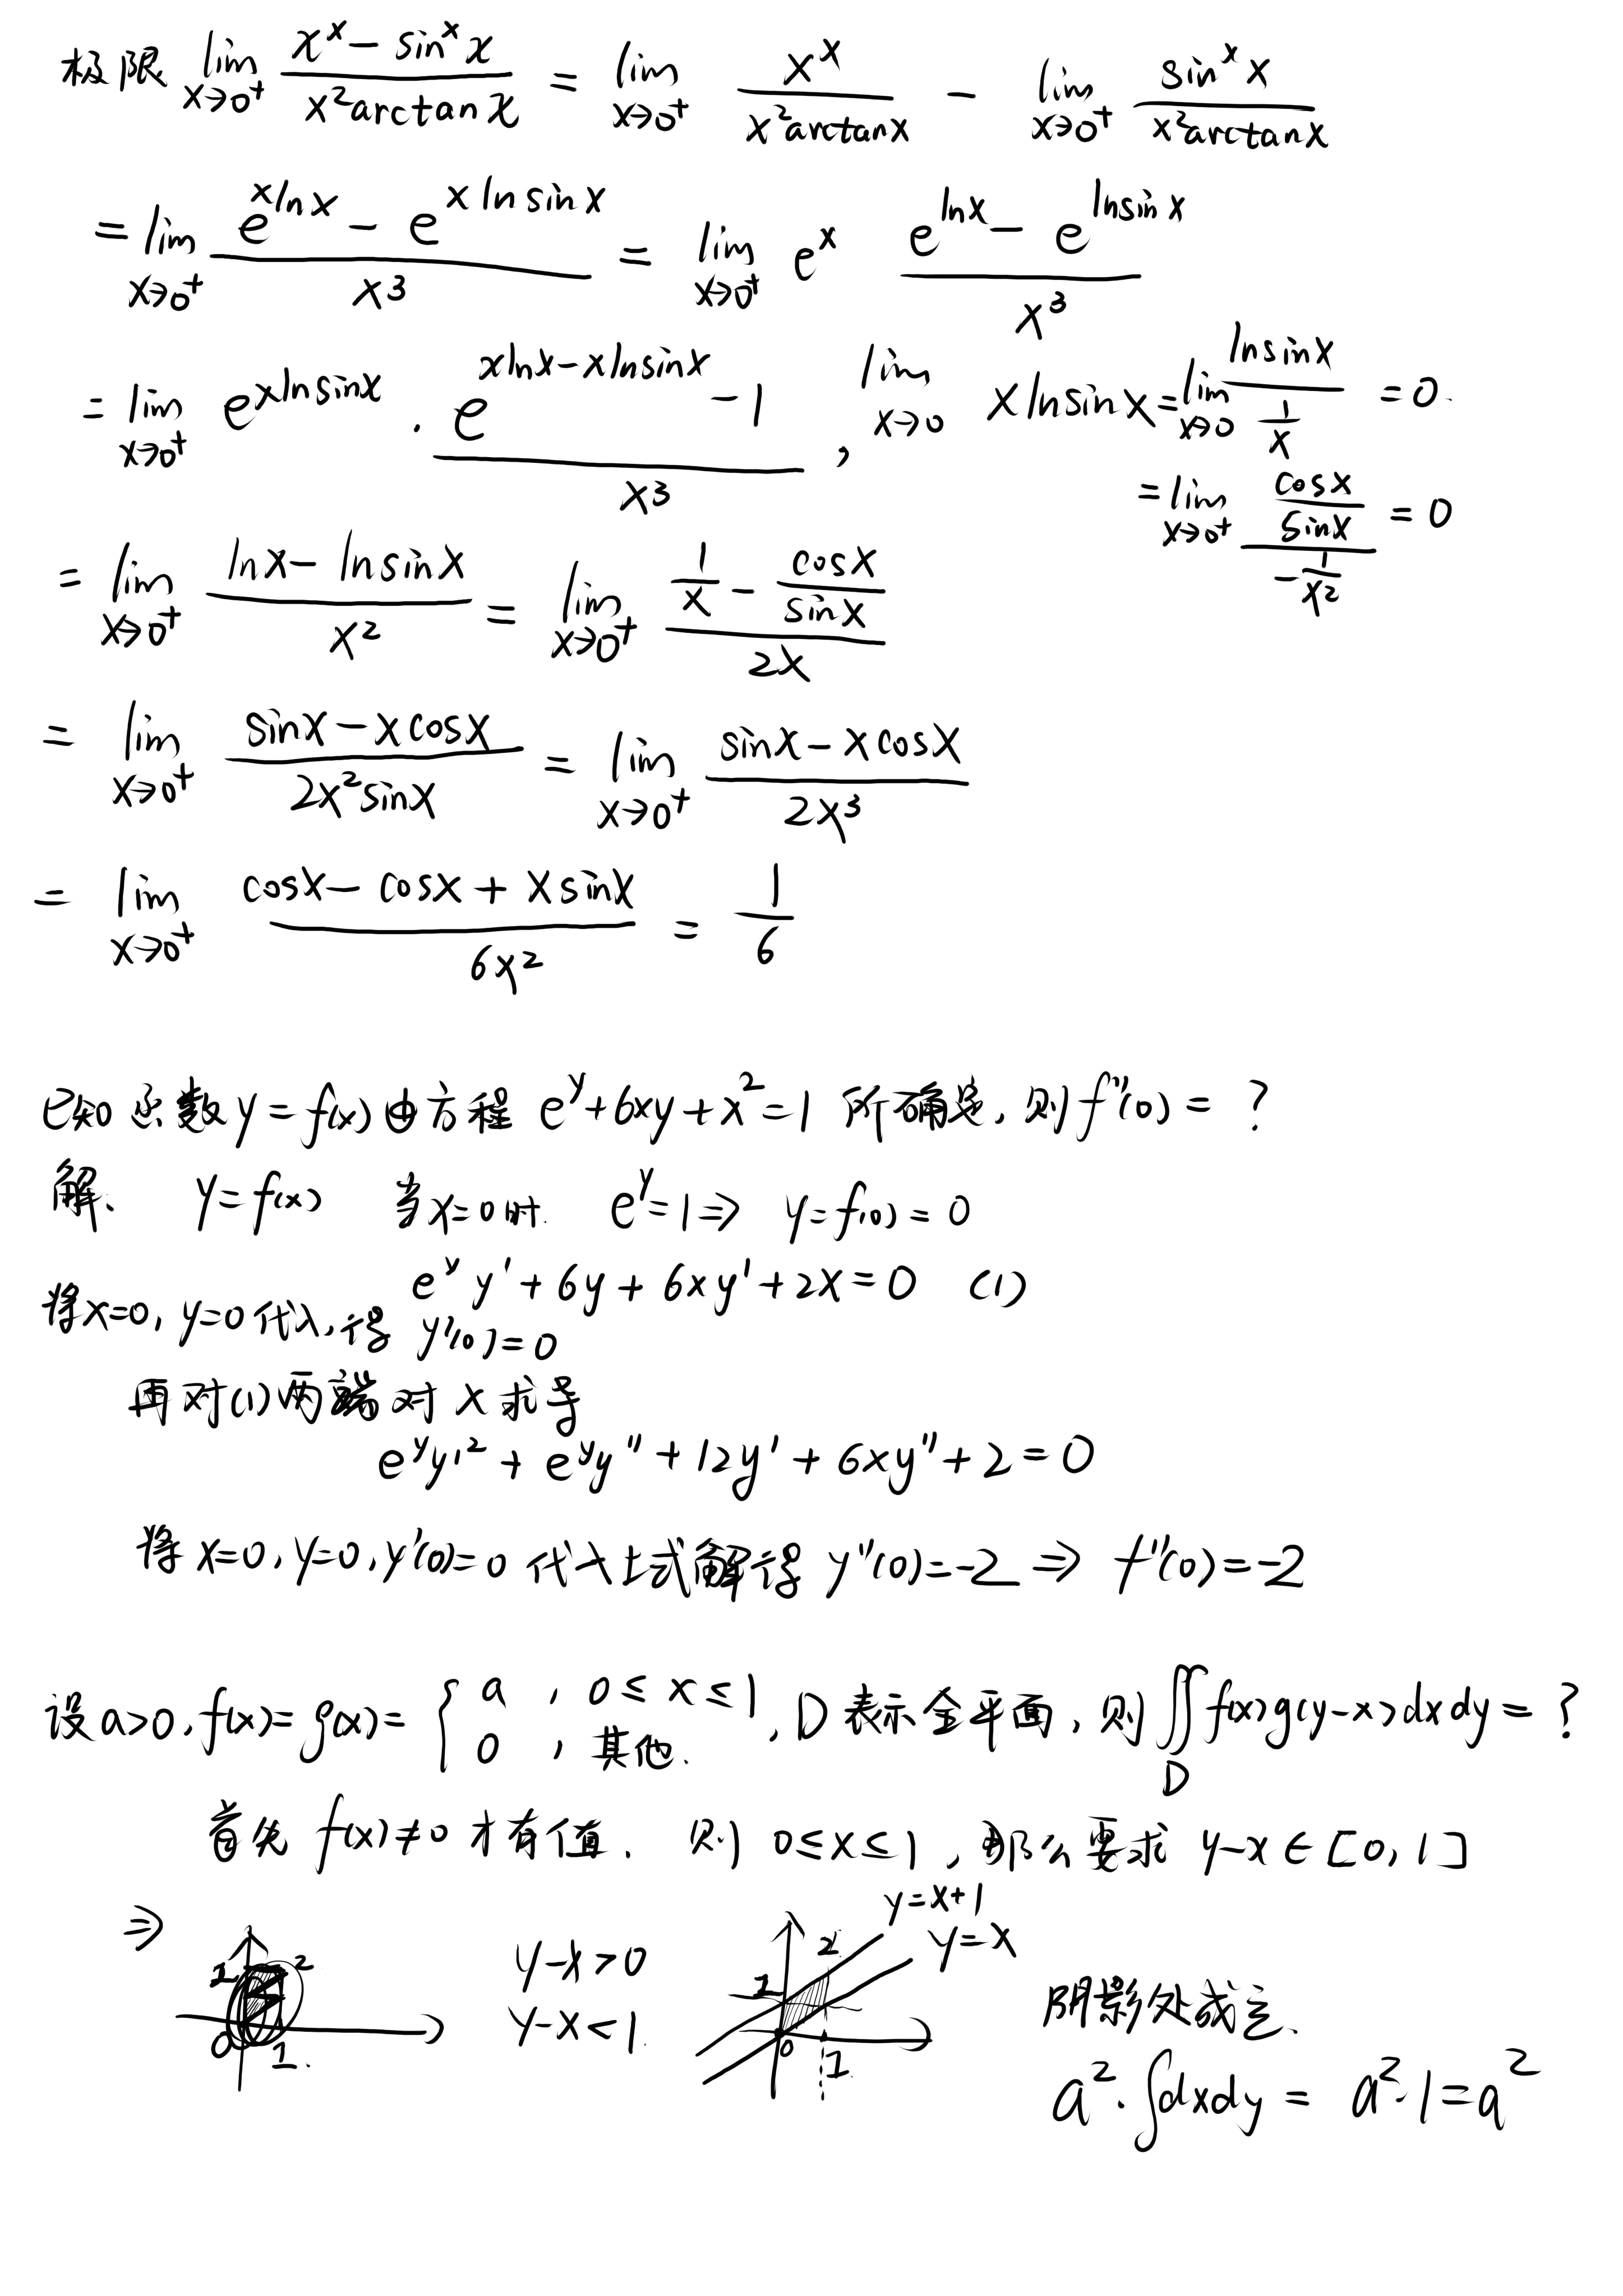 极限 lim x→0⁺ (xˣ - sinˣx)/(x²arctanx) = lim x→0⁺ xˣ/(x²arctanx) - lim x→0⁺ sinˣx/(x²arctanx)
= lim x→0⁺ (e^(xlnx) - e^(xlnsinx))/x³ = lim x→0⁺ eˣ (e^(lnx) - e^(lnsinx))/x³
= lim x→0⁺ e^(xlnsinx) · (e^(xlnx-xlnsinx) - 1)/x³ , lim x→0 xlnsinx = lim x→0 lnsinx/(1/x) = 0.
= lim x→0⁺ (cosx/sinx)/(-1/x²) = 0
= lim x→0⁺ (lnx - lnsinx)/x² = lim x→0⁺ (1/x - cosx/sinx)/(2x)
= lim x→0⁺ (sinx - xcosx)/(2x²sinx) = lim x→0⁺ (sinx - xcosx)/(2x³)
= lim x→0⁺ (cosx - cosx + xsinx)/(6x²) = 1/6
已知函数y=f(x)由方程 e^y+6xy+x²=1 所确定,则f''(0)= ?
解、 y=f(x) 当x=0时. e^y=1⇒ y=f(0)=0
e^y y'+6y+6xy'+2x=0 (1)
将x=0, y=0代入,得 y'(0)=0
再对(1)两端对x求导
e^y y'² + e^y y'' + 12y' + 6xy'' + 2 = 0
将x=0,y=0,y'(0)=0代入上式解得 y''(0)=-2 ⇒ f''(0)=-2
设a>0,f(x)=g(x)= { a , 0≤x≤1 ; 0 , 其他. ,D表示全平面,则∬_D f(x)g(y-x)dxdy=?
首先 f(x)≠0才有值. 则 0≤x≤1,那么要求 y-x∈[0,1]
⇒
1 2 0 1.
y-x>0
y-x<1.
y=x+1
y=x
2 1 0 1
阴影处成立、
a²·∫dxdy = a²·1=a²